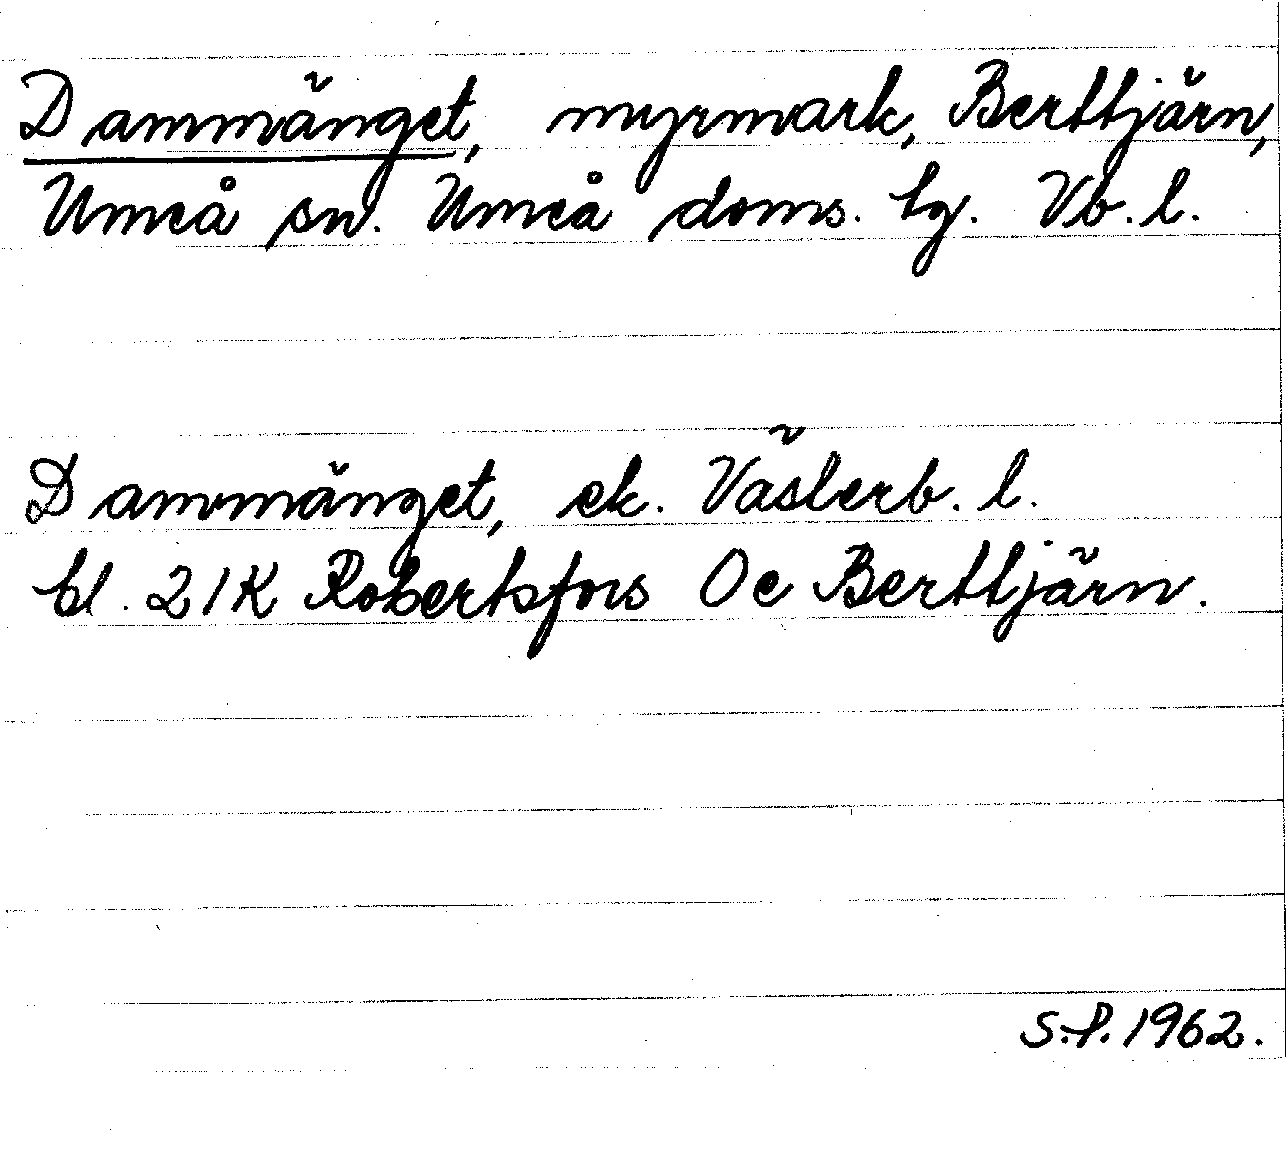 Dammänget, myrmark, Berttjärn,
Umeå sn. Umeå doms. tg. Vb. l.
Dammänget, ek. Västerb. l.
bl. 21K Robertsfors Oe Berttjärn.
S.P. 1962.